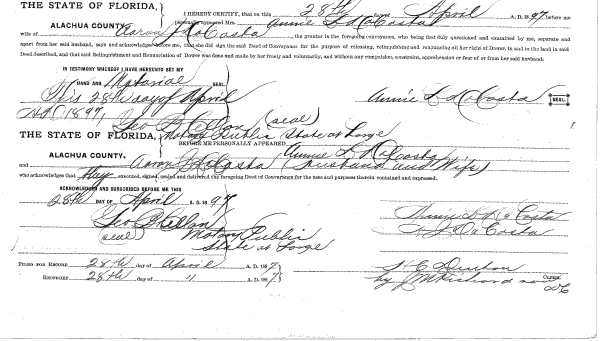 THE STATE OF FLORIDA,
I HEREBY CERTIFY, that on this 28th April A. D. 1897, before me
ALACHUA COUNTY. personally appeared Mrs. Annie L DaCosta
wife of Aaron J DaCosta the grantor in the foregoing conveyance, who being first duly questioned and examined by me, separate and
apart from her said husband, says and acknowledges before me, that she did sign the said Deed of Conveyance for the purpose of releasing, relinquishing and renouncing all her right of Dower, in and to the land in said
Deed described, and that said Relinquishment and Renunciation of Dower was done and made by her freely and voluntarily, and without any compulsion, constraint, apprehension or fear of or from her said husband.
IN TESTIMONY WHEREOF I HAVE HEREUNTO SET MY
HAND AND Notarial
This 28th day of April Annie L DaCosta SEAL.
AD 1897,
(seal)
THE STATE OF FLORIDA, Notary Public State at Large
BEFORE ME PERSONALLY APPEARED Annie L DaCosta
ALACHUA COUNTY.
and Aaron J DaCosta (Husband and Wife)
who acknowledges that they executed, signed, sealed and delivered the foregoing Deed of Conveyance for the uses and purposes therein contained and expressed.
ACKNOWLEDGED AND SUBSCRIBED BEFORE ME THIS
28th DAY OF April A. D. 1897
Annie L DaCosta
(seal) Notary Public A J DaCosta
State at Large
FILED FOR RECORD 28th day of April A. D. 1897
RECORDED 28th day of " A. D. 1897
CLERK.
by